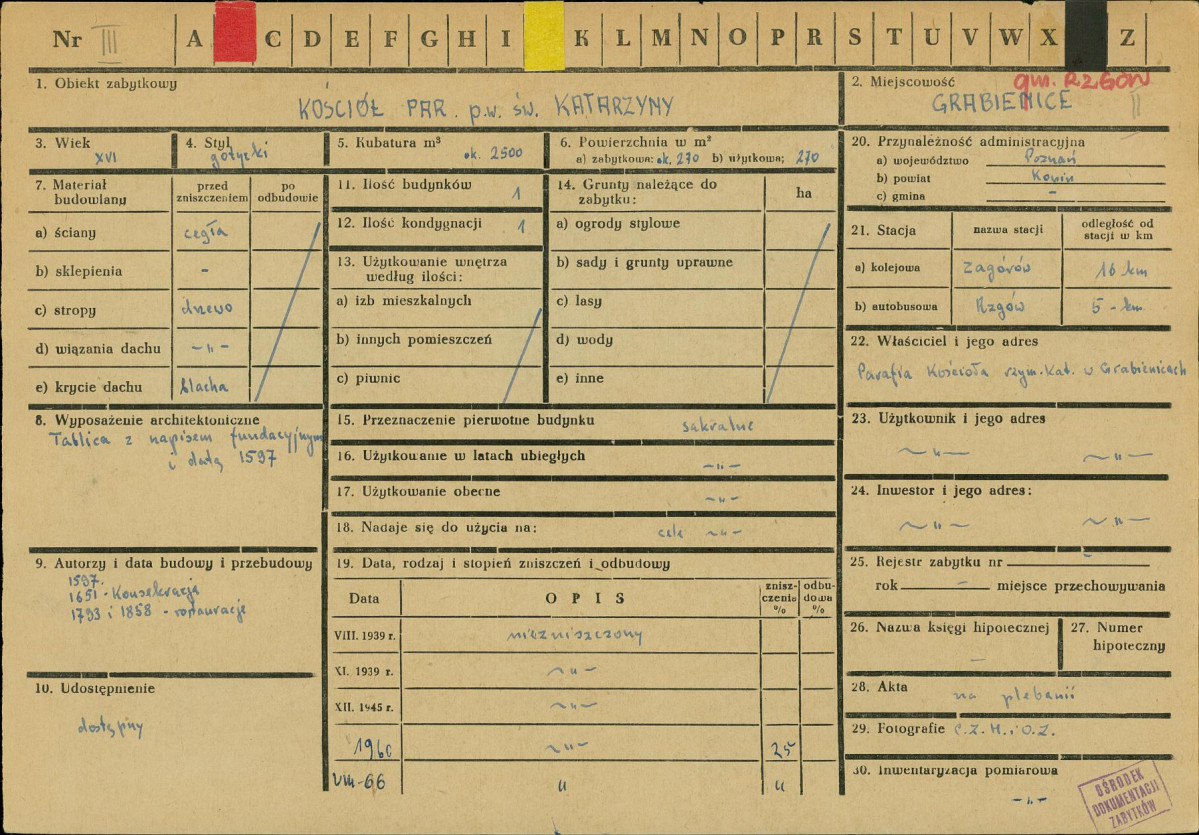 Nr III A C D E F G H I K L M N O P R S T U V W X Z
1. Obiekt zabytkowy
KOŚCIÓŁ PAR. p.w. św. KATARZYNY
2. Miejscowość
gm. RZGÓW
GRABIENICE II
3. Wiek
XVI
4. Styl
gotycki
5. Kubatura m³
ok. 2500
6. Powierzchnia w m²
a) zabytkowa: ok. 270 b) użytkowa; 270
7. Materiał budowlany
przed zniszczeniem
po odbudowie
a) ściany cegła
b) sklepienia -
c) stropy drzewo
d) wiązania dachu -„-
e) krycie dachu blacha
8. Wyposażenie architektoniczne
Tablica z napisem fundacyjnym
i datą 1597
9. Autorzy i data budowy i przebudowy
1597.
1651 - Konsekracja
1793 i 1858 - restauracje
10. Udostępnienie
dostępny
11. Ilość budynków 1
12. Ilość kondygnacji 1
13. Użytkowanie wnętrza
według ilości:
a) izb mieszkalnych
b) innych pomieszczeń
c) piwnic
14. Grunty należące do
zabytku:
ha
a) ogrody stylowe
b) sady i grunty uprawne
c) lasy
d) wody
e) inne
15. Przeznaczenie pierwotne budynku sakralne
16. Użytkowanie w latach ubiegłych -„-
17. Użytkowanie obecne -„-
18. Nadaje się do użycia na: cele -„-
19. Data, rodzaj i stopień zniszczeń i odbudowy
Data
OPIS
znisz-
czenia
%
odbu-
dowa
%
VIII. 1939 r. niezniszczony
XI. 1939 r. -„-
XII. 1945 r. -„-
1960 -„- 25
VIII-66 „ „
20. Przynależność administracyjna
a) województwo Poznań
b) powiat Konin
c) gmina -
21. Stacja
nazwa stacji
odległość od
stacji w km
a) kolejowa Zagórów 16 km
b) autobusowa Rzgów 5 - km
22. Właściciel i jego adres
Parafia Kościoła rzym.kat. w Grabienicach
23. Użytkownik i jego adres
-„- -„-
24. Inwestor i jego adres:
-„- -„-
25. Rejestr zabytku nr -
rok - miejsce przechowywania
26. Nazwa księgi hipotecznej
-
27. Numer
hipoteczny
28. Akta na plebanii
29. Fotografie C.Z.M.i O.Z.
30. Inwentaryzacja pomiarowa
-„-
OŚRODEK
DOKUMENTACJI
ZABYTKÓW